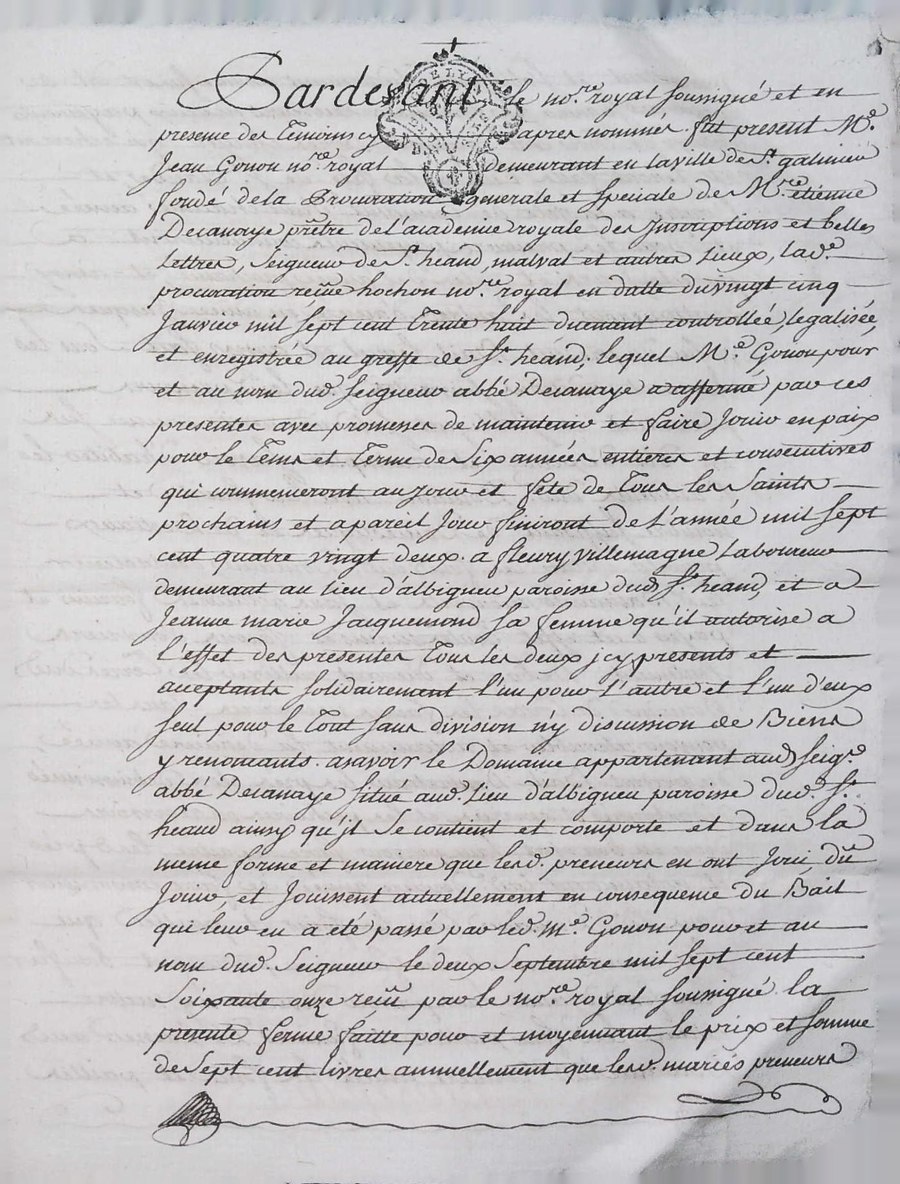 Pardevant le no.re royal soussigné et en
presence des temoins cy apres nommés. fut present M.e
Jean Gonon no.re royal demeurant en la ville de S.t galmier
fondé de la Procuration generale et speciale de M.re etienne
Decanaye prêtre de l'academie royale des Inscriptions et belles
Lettres, Seigneur de S.t heand, malval et autres Lieux, lad.e
procuration reçue hochon no.re royal en datte du vingt cinq
Janvier mil sept cent trente huit duement controllée, legalisée
et enregistrée au greffe de S.t heand; lequel M.e Gonon pour
et au nom dud. Seigneur abbé Decanaye a affermé par ces
presentes avec promesses de maintenir et faire Jouir en paix
pour le tems et terme de Six années entieres et consecutives
qui commenceront au jour et fête de tous les Saints
prochains et a pareil Jour finiront de l'année mil sept
cent quatre vingt deux. a fleury villemagne Laboureur
demeurant au lieu d'albigneu paroisse dud. S.t heand, et a
Jeanne marie Jacquemond sa femme qu'il autorise a
l'effet des presentes tous les deux jcy presents et
acceptants solidairement l'un pour l'autre et l'un d'eux
seul pour le tout sans division n'y discussion de Biens
y renoncants. asavoir le Domaine appartenant aud. seig.r
abbé Decanaye situé aud. Lieu d'albigneu paroisse dud. S.t
heand ainsy qu'jl se contient et comporte et dans la
meme forme et maniere que lesd. preneurs en ont Joui dû
Jouir, et Jouissent actuellement en consequence du Bail
qui leur en a été passé par led. M.e Gonon pour et au
nom dud. Seigneur le deux Septembre mil sept cent
Soixante onze reçû par le no.re royal soussigné. la
presente ferme faitte pour et moyennant le prix et somme
de Sept cent livres annuellement que lesd. mariés preneurs